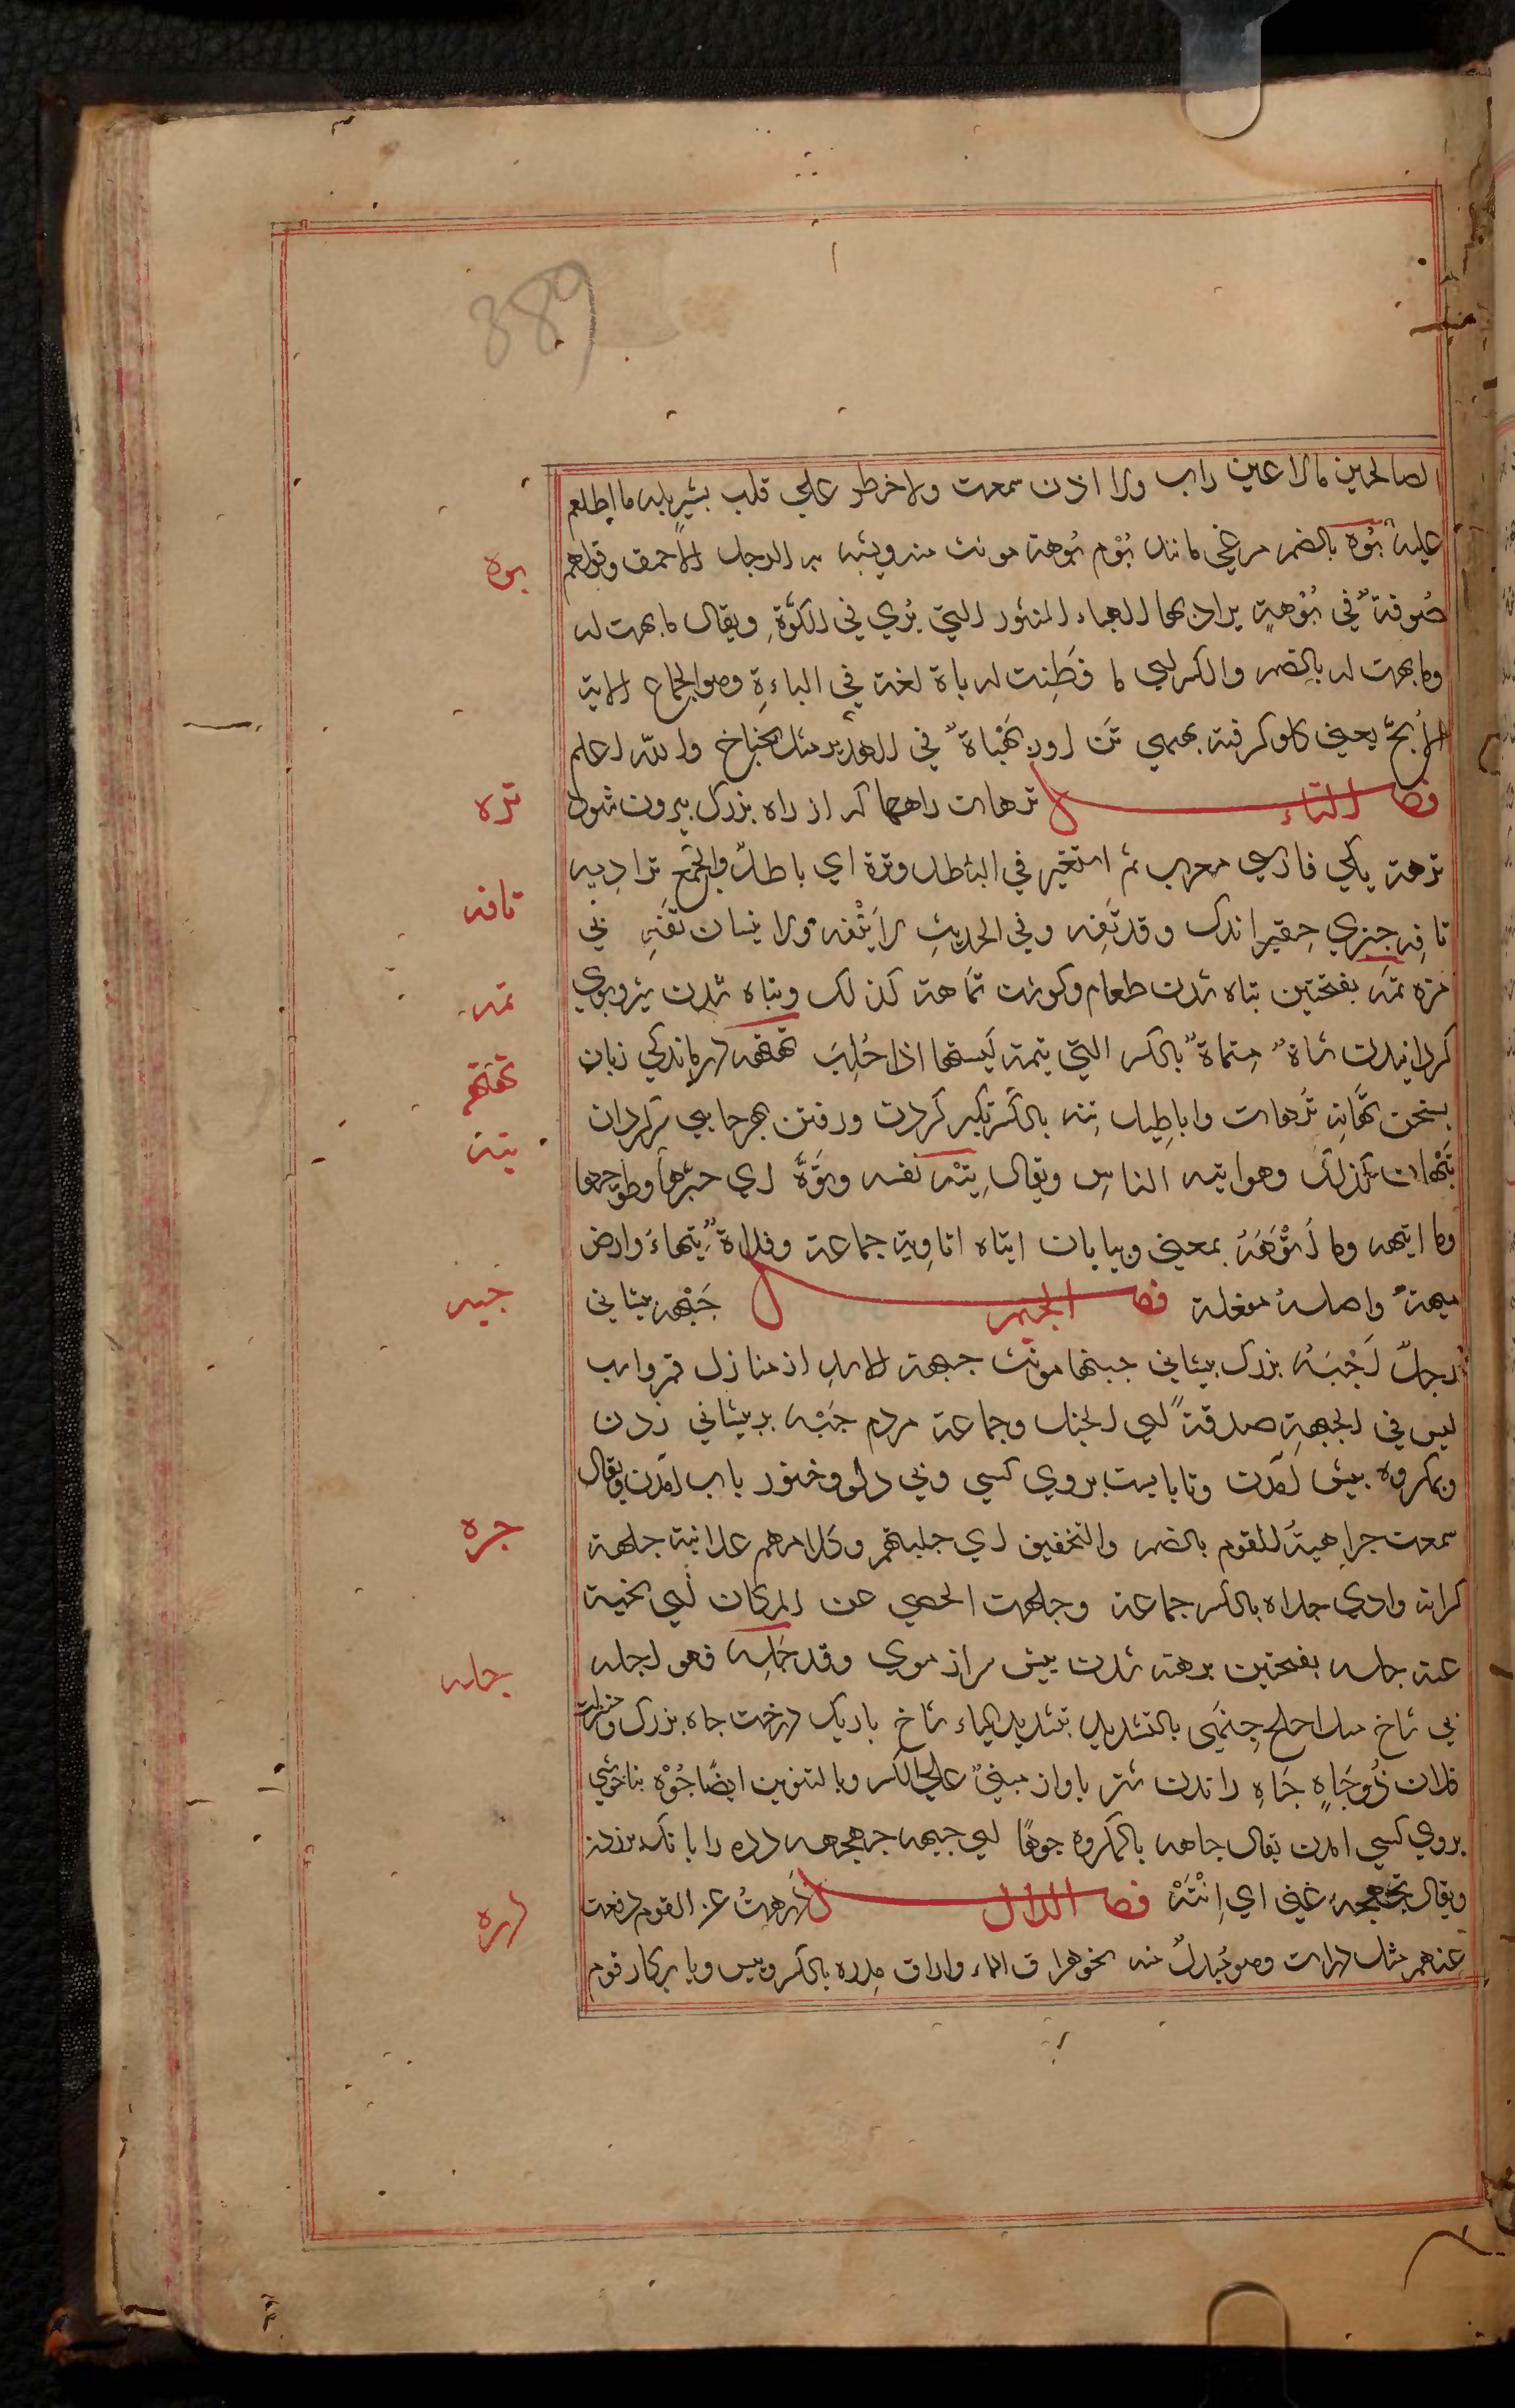 389
الصالحين مالا عين رات ولا اذن سمعت ولاخطر علي قلب بشر بله ما اطلعم
عليه بُوه بالضم مرغي مانند بُوْم بُوهة مونث منه ويشبه به الرجل الاحمق وقولهم
صُوفةٌ في بُوْهةٍ يراد بها الهباء المنثور التي يُري في الكوّةِ ويقال ما بهت له
وما بهت له بالضم والكسر اي ما فَطِنت له باة لغة في الباءةِ وهو الجماع الابه
الأبحّ يعني كلو كرفته في الهدير مثل بخباخ والله اعلم
فصل التاء ترهات راهها كه از راه بزرك بيرون شود
ترهة يكي فارسي معرب ثم استعير في الباطل وترة اي باطلٌ والجمع تراريه
تافِه چيزي حقير اندك وقد تَفِه وفي الحديثِ لا يَتْفه ولا
مزه تمَه بفتحتين تباه شدن طعام وكوشت تمَاهة كذلك وتباه شدن شير وبوي
كردانيدن شاةٌ مِتماةٌ بالكسر التي يتمه لَبنها اذا حُلِبَ تهتهه درماندكي زبان
بسخن تُرهات واباطيل تيه بالكسر تكبر كردن ورفتن بهرجايي سركردان
تَيْهان كذلك وهو اتيه الناسِ ويقال تيّه نفسه وتَوَّهَ اي حيّرها وطوّحها
وما اتيهه وما اَتْوَهَهُ بمعني وبيابان اتياه اتاويه جماعة وفلاةٌ تيهاءُ وارض
ميهةٌ واصله مفعلة فصل الجيم جَبْهه پيشاني
رجلٌ اَجْبَهُ بزرك پيشاني جبهاء مونث جبهة الاسد از منازل قمر وات
ليس في الجبهةِ صدقةٌ اي الخيل وجماعة مردم جَبْه بر پيشاني زدن
وبمكروه پيش امدن وناپايست بروي كسي وبي دلو وخنور باب امدن ويقال
سمعت جراهيةَ القوم بالضم والتخفيف اي جلبتهم وكلامهم علانية جلهة
كرانه وادي جلاه بالكسر جماعة وجلهت الحصي عن المكان اي نحيته
عنه جله بفتحتين برهنه شدن پيش سر از موي وقد جَلِه فهو اجله
بي شاخ مثل اجلح جِنهَي بالتشديد بتشديد الياء شاخ باريك درخت جاه بزرك ومنزلت
فلان ذُو جَاهٍ جَاهِ راندن شتر باواز مبنيٌ علي الكسر وبالتنوين ايضًا جُوْه بناخوشي
بروي كسي امدن يقال جاهه بالمكروه جوهًا اي جبهه جهجهه دده را بانك برزدن
ويقال تجهجه عني اي اِنْتَهْ فصل الدال دَرهتُ عن القوم دفعت
عنهم مثل درات وهو مُبدلٌ منه نحو هراق الماء واراق مِدره بالكسر ريس وپايركار قوم
بوه
تره
تافه
تمه
تهته
تيه
جبه
جره
جله
دره